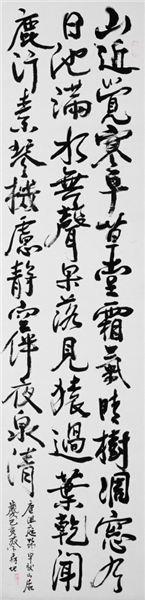 山近覺寒早草堂霜氣晴樹凋窓有
日池滿水無聲果落見猿過葉乾聞
鹿行素琴機慮靜空伴夜泉清
唐溫庭筠早秋山居